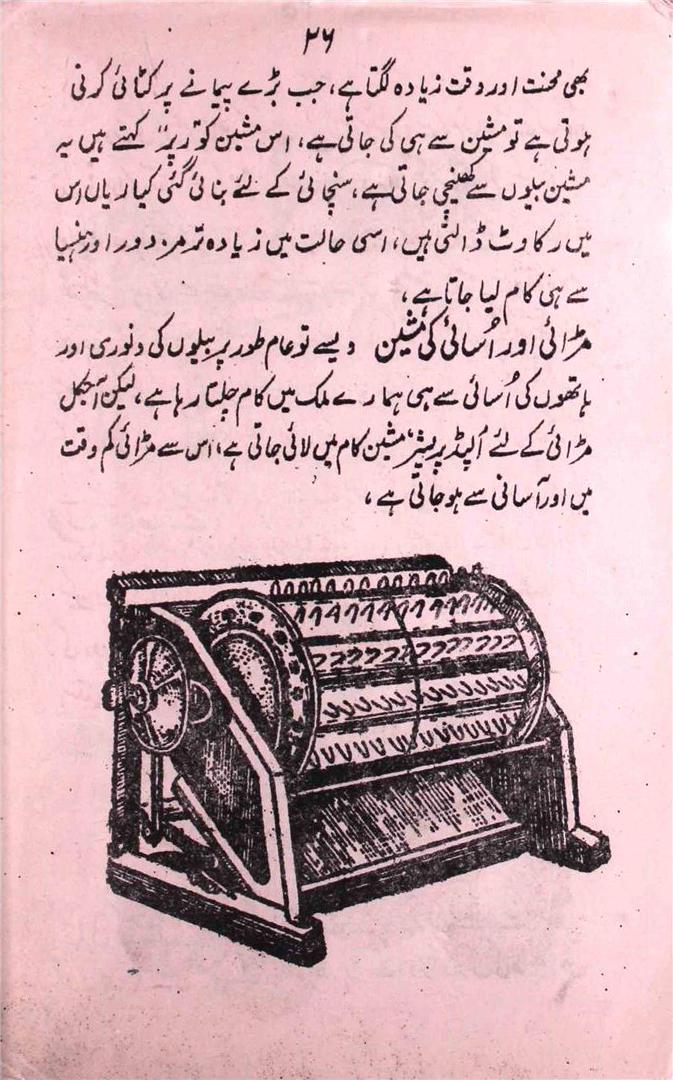 ۲۶
بھی محنت اور وقت زیادہ لگتا ہے، جب بڑے پیمانے پر کٹائی کرنی
ہوتی ہے تو مشین سے ہی کی جاتی ہے، اس مشین کو "ریپر" کہتے ہیں یہ
مشین بیلوں سے کھینچی جاتی ہے، سنچائی کے لئے بنائی گئی کیاریاں اس
میں رکاوٹ ڈالتی ہیں، اسی حالت میں زیادہ تر مزدور اور ہنسیا
سے ہی کام لیا جاتا ہے،
مڑائی اور اُسائی کی مشین ویسے تو عام طور پر بیلوں کی دنوری اور
ہاتھوں کی اُسائی سے ہی ہمارے ملک میں کام چلتا رہا ہے، لیکن آجکل
مڑائی کے لئے مشین کام میں لائی جاتی ہے، اس سے مڑائی کم وقت
میں اور آسانی سے ہو جاتی ہے،